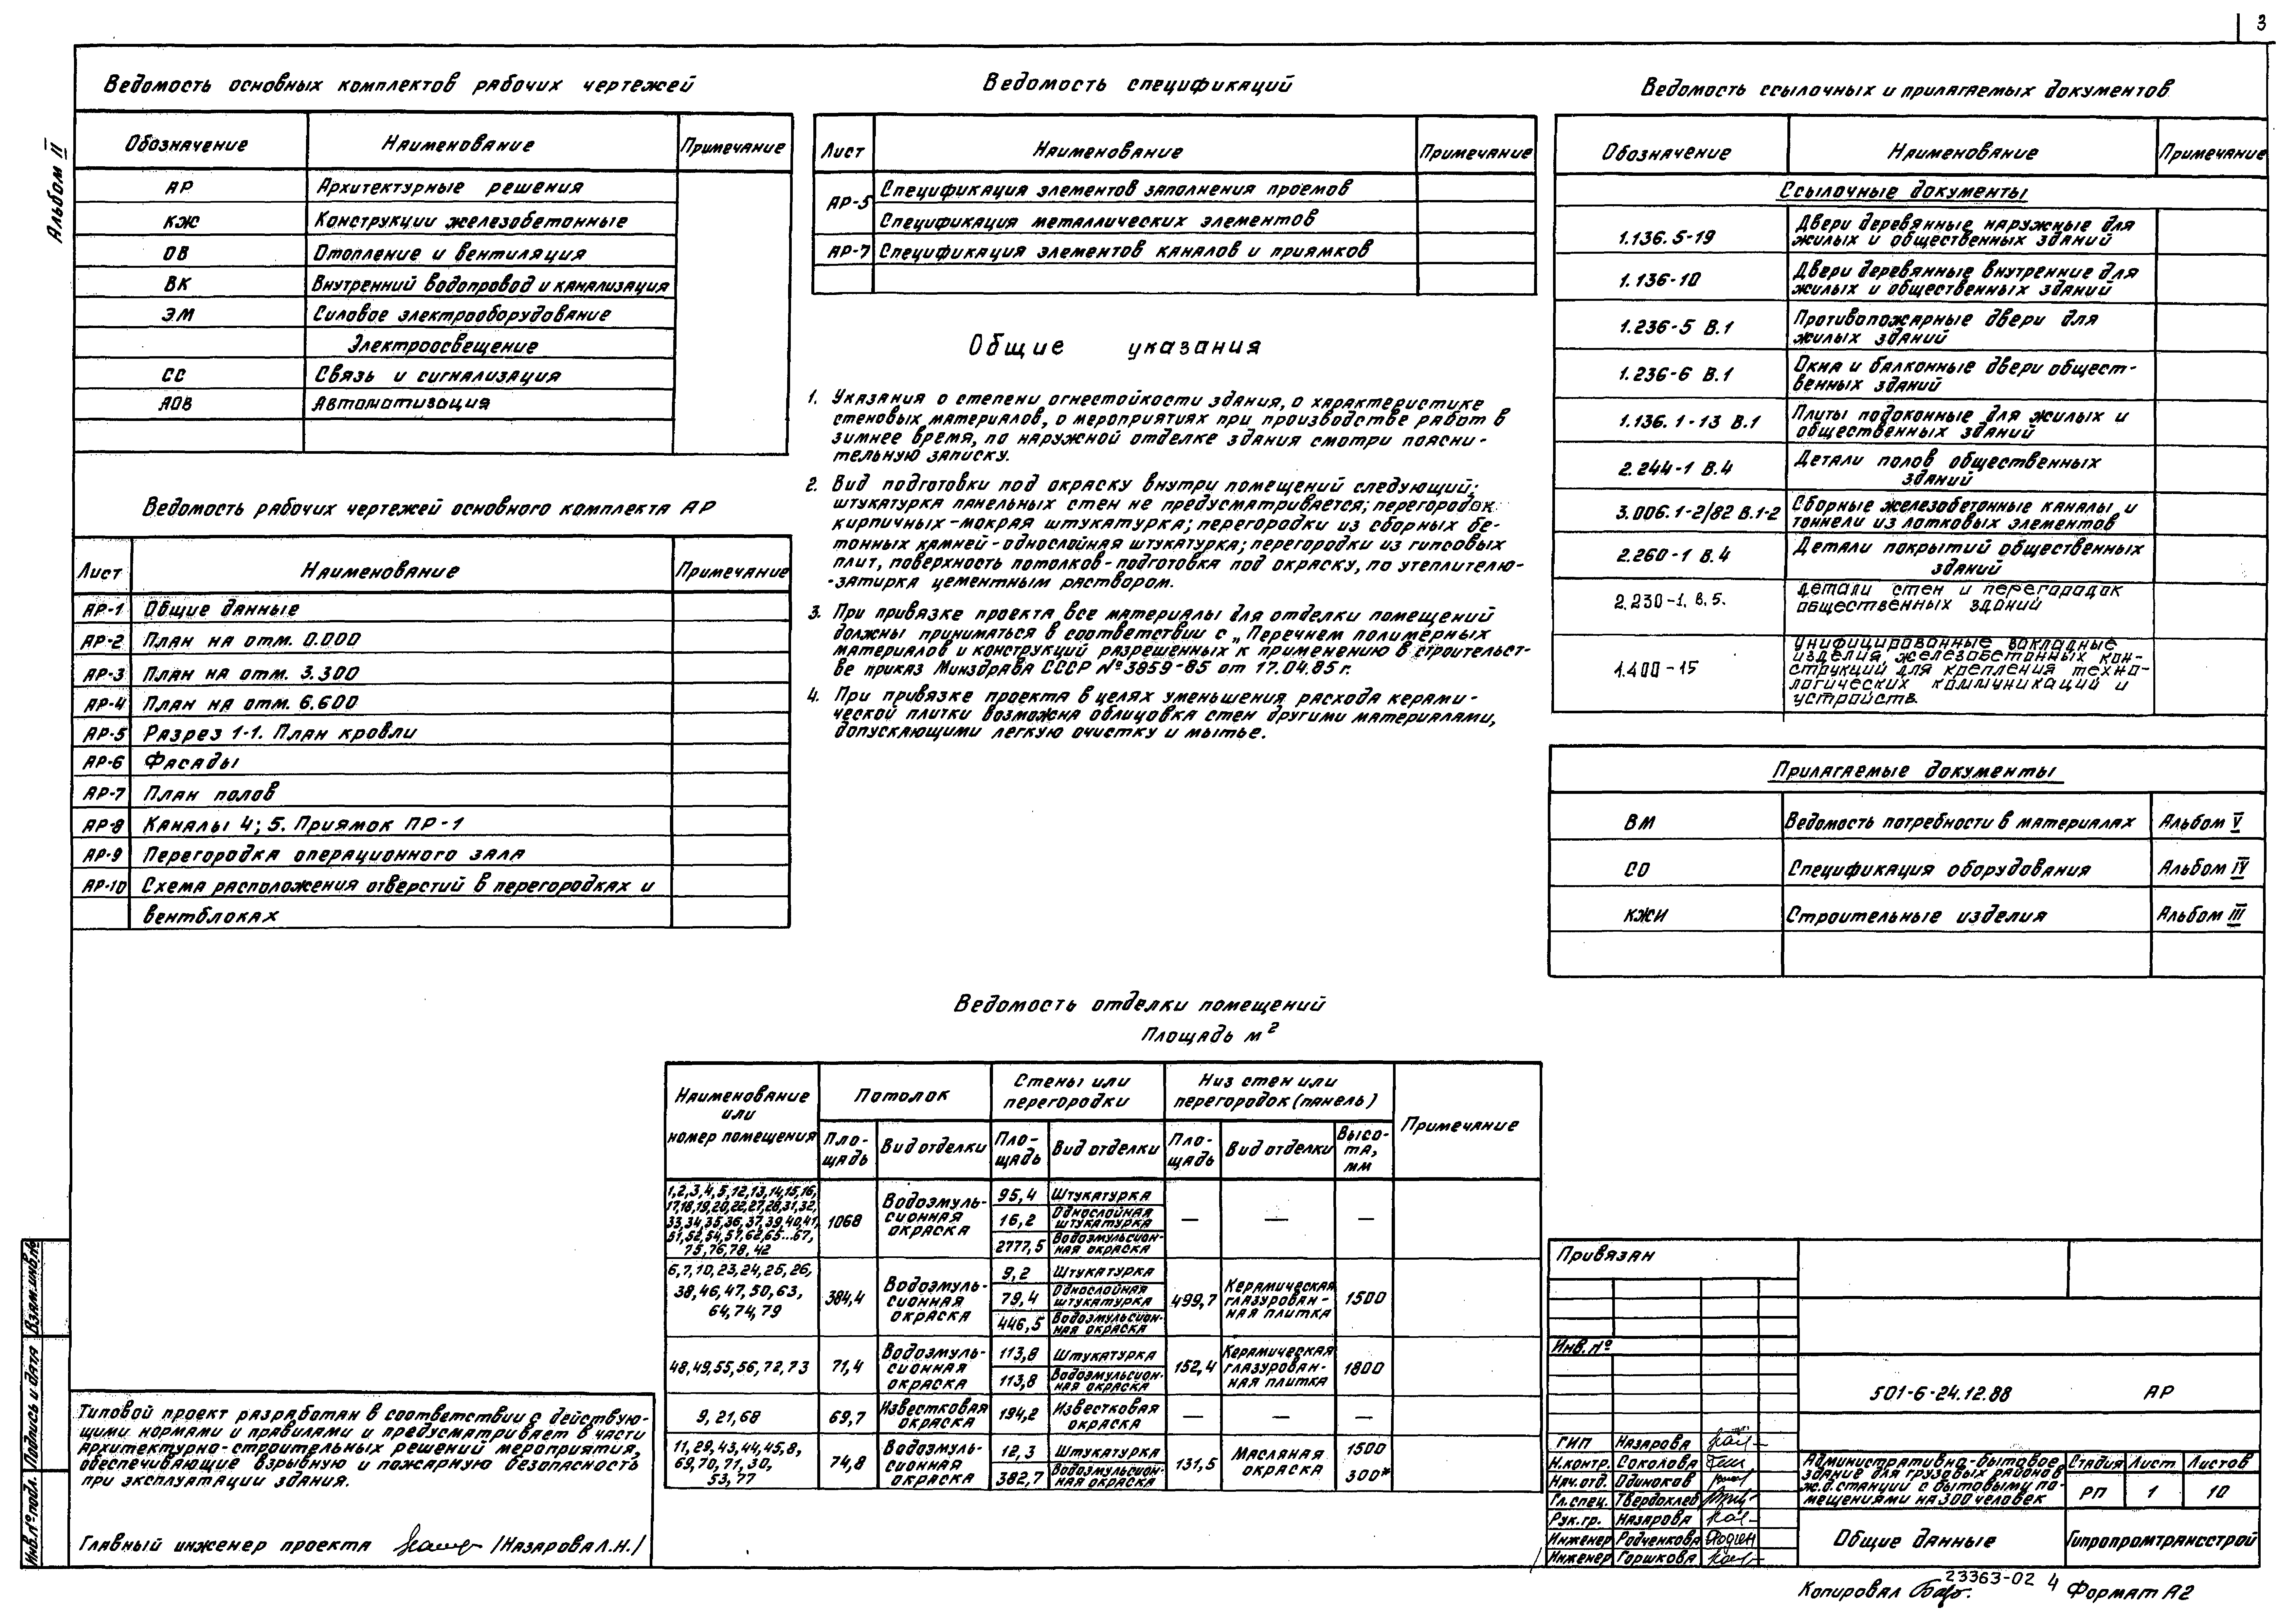 3
Альбом II
Ведомость основных комплектов рабочих чертежей
Обозначение Наименование Примечание
АР Архитектурные решения
КЖ Конструкции железобетонные
ОВ Отопление и вентиляция
ВК Внутренний водопровод и канализация
ЭМ Силовое электрооборудование
Электроосвещение
СС Связь и сигнализация
АОВ Автоматизация
Ведомость рабочих чертежей основного комплекта АР
Лист Наименование Примечание
АР-1 Общие данные
АР-2 План на отм. 0.000
АР-3 План на отм. 3.300
АР-4 План на отм. 6.600
АР-5 Разрез 1-1. План кровли
АР-6 Фасады
АР-7 План полов
АР-8 Каналы 4; 5. Приямок ПР-1
АР-9 Перегородка операционного зала
АР-10 Схема расположения отверстий в перегородках и
вентблоках
Ведомость спецификаций
Лист Наименование Примечание
АР-5 Спецификация элементов заполнения проемов
Спецификация металлических элементов
АР-7 Спецификация элементов каналов и приямков
Общие указания
1. Указания о степени огнестойкости здания, о характеристике
стеновых материалов, о мероприятиях при производстве работ в
зимнее время, по наружной отделке здания смотри поясни-
тельную записку.
2. Вид подготовки под окраску внутри помещений следующий:
штукатурка панельных стен не предусматривается; перегородок
кирпичных-мокрая штукатурка; перегородки из сборных бе-
тонных камней-однослойная штукатурка; перегородки из гипсовых
плит, поверхность потолков-подготовка под окраску, по утеплителю-
-затирка цементным раствором.
3. При привязке проекта все материалы для отделки помещений
должны приниматься в соответствии с „Перечнем полимерных
материалов и конструкций разрешенных к применению в строительст-
ве приказ Минздрава СССР №3859-85 от 17.04.85г.
4. При привязке проекта в целях уменьшения расхода керами-
ческой плитки возможна облицовка стен другими материалами,
допускающими легкую очистку и мытье.
Ведомость ссылочных и прилагаемых документов
Обозначение Наименование Примечание
Ссылочные документы
1.136.5-19 Двери деревянные наружные для
жилых и общественных зданий
1.136-10 Двери деревянные внутренние для
жилых и общественных зданий
1.236-5 В.1 Противопожарные двери для
жилых зданий
1.236-6 В.1 Окна и балконные двери общест-
венных зданий
1.136.1-13 В.1 Плиты подоконные для жилых и
общественных зданий
2.244-1 В.4 Детали полов общественных
зданий
3.006.1-2/82 В.1-2 Сборные железобетонные каналы и
тоннели из лотковых элементов
2.260-1 В.4 Детали покрытий общественных
зданий
2.230-1. В.5. Детали стен и перегородок
общественных зданий
1.400-15 Унифицированные закладные
изделия железобетонных кон-
струкций для крепления техно-
логических коммуникаций и
устройств.
Прилагаемые документы
ВМ Ведомость потребности в материалах Альбом V
СО Спецификация оборудования Альбом IV
КЖИ Строительные изделия Альбом III
Ведомость отделки помещений
Площадь м²
Наименование или номер помещения Потолок Стены или перегородки Низ стен или перегородок (панель) Примечание
Пло-щадь Вид отделки Пло-щадь Вид отделки Пло-щадь Вид отделки Высо-та, мм
1,2,3,4,5,12,13,14,15,16,
17,18,19,20,22,27,28,31,32,
33,34,35,36,37,39,40,41,
51,52,54,57,62,65...67,
75,76,78,42
1068 Водоэмуль-сионная окраска
95,4 Штукатурка
16,2 Однослойная штукатурка
2777,5 Водоэмульсион-ная окраска
— — —
6,7,10,23,24,25,26,
38,46,47,50,63,
64,74,79
384,4 Водоэмуль-сионная окраска
9,2 Штукатурка
79,4 Однослойная штукатурка
446,5 Водоэмульсион-ная окраска
499,7 Керамическая глазурован-ная плитка 1500
48,49,55,56,72,73 71,4 Водоэмуль-сионная окраска
113,8 Штукатурка
113,8 Водоэмульсион-ная окраска
152,4 Керамическая глазурован-ная плитка 1800
9,21,68 69,7 Известковая окраска 194,2 Известковая окраска — — —
11,29,43,44,45,8,
69,70,71,30,
53,77
74,8 Водоэмуль-сионная окраска
12,3 Штукатурка
382,7 Водоэмульсион-ная окраска
131,5 Масляная окраска 1500
300*
Типовой проект разработан в соответствии с действую-
щими нормами и правилами и предусматривает в части
архитектурно-строительных решений мероприятия,
обеспечивающие взрывную и пожарную безопасность
при эксплуатации здания.
Главный инженер проекта /Назарова Л.Н./
Взам.инв.№
Подпись и дата
Инв.№ подл.
Привязан
Инв.№
501-6-24.12.88 АР
ГИП Назарова
Н.контр. Соколова
Нач.отд. Одиноков
Гл.спец. Твердохлеб
Рук.гр. Назарова
Инженер Родченкова
Инженер Горшкова
Административно-бытовое
здание для грузовых районов
ж.д.станций с бытовыми по-
мещениями на 300 человек
Стадия Лист Листов
РП 1 10
Общие данные
Гипропромтрансстрой
23363-02 4
Копировал Формат А2